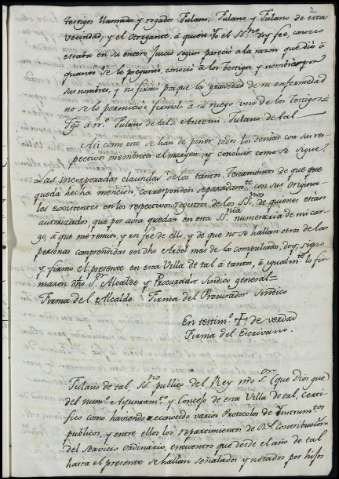 testigos llamados y rogados Fulano, Fulano y Fulano de esta
vecindad, y el otorgante, a quien yo el SS.no doy fee, conozco
estaba en su entero juicio segun parecio a la razon que dio a
quanto se le pregunto, conocio a los testigos, y nombrolos por
su nombre, y no firmo pa que la gravedad de su enfermedad
no se lo permitio, firmolo a su ruego uno de los testigos
Tgo. a r.o Fulano de tal = Antemi. Fulano de tal
Asi como este se han de poner todos los demas con sus res
pectivos membretes al margen, y concluir como se sigue
Las incorporadas clausulas de los tantos Testamentos de que que
da hecha mencion, corresponden separadam.te con sus Origina
les existentes en los respectivos rexistros de los SS.nos de quienes estan
autorizados que por aora quedan en esta SS.nia numeraria de mi car
go, a que me remito, y en fee de ello, y de que no se hallan otras de las
personas comprendidas en dho Estado mas de lo compulsado, doy, signo
y firmo el presente en esta Villa de tal a tantos, e igualm.te lo fir
maron dhos S.r Alcalde y Procurador Sindico general
Firma del Alcalde Firma del Procurador Sindico
En testim.o de verdad
Firma del Escrivano.
Fulano de tal SS.no publico del Rey nro S.r (que Dios gue)
del num.o Ayuntam.to y Concejo de esta Villa de tal, certi
fico como haviendo reconocido varios Protocolos de Instrum.tos
publicos, y entre ellos los repartimientos de R.l Contribucion
del Servicio Ordinario, encuentro que desde el año de tal
hasta el presente se hallan señalados y notados por hijos